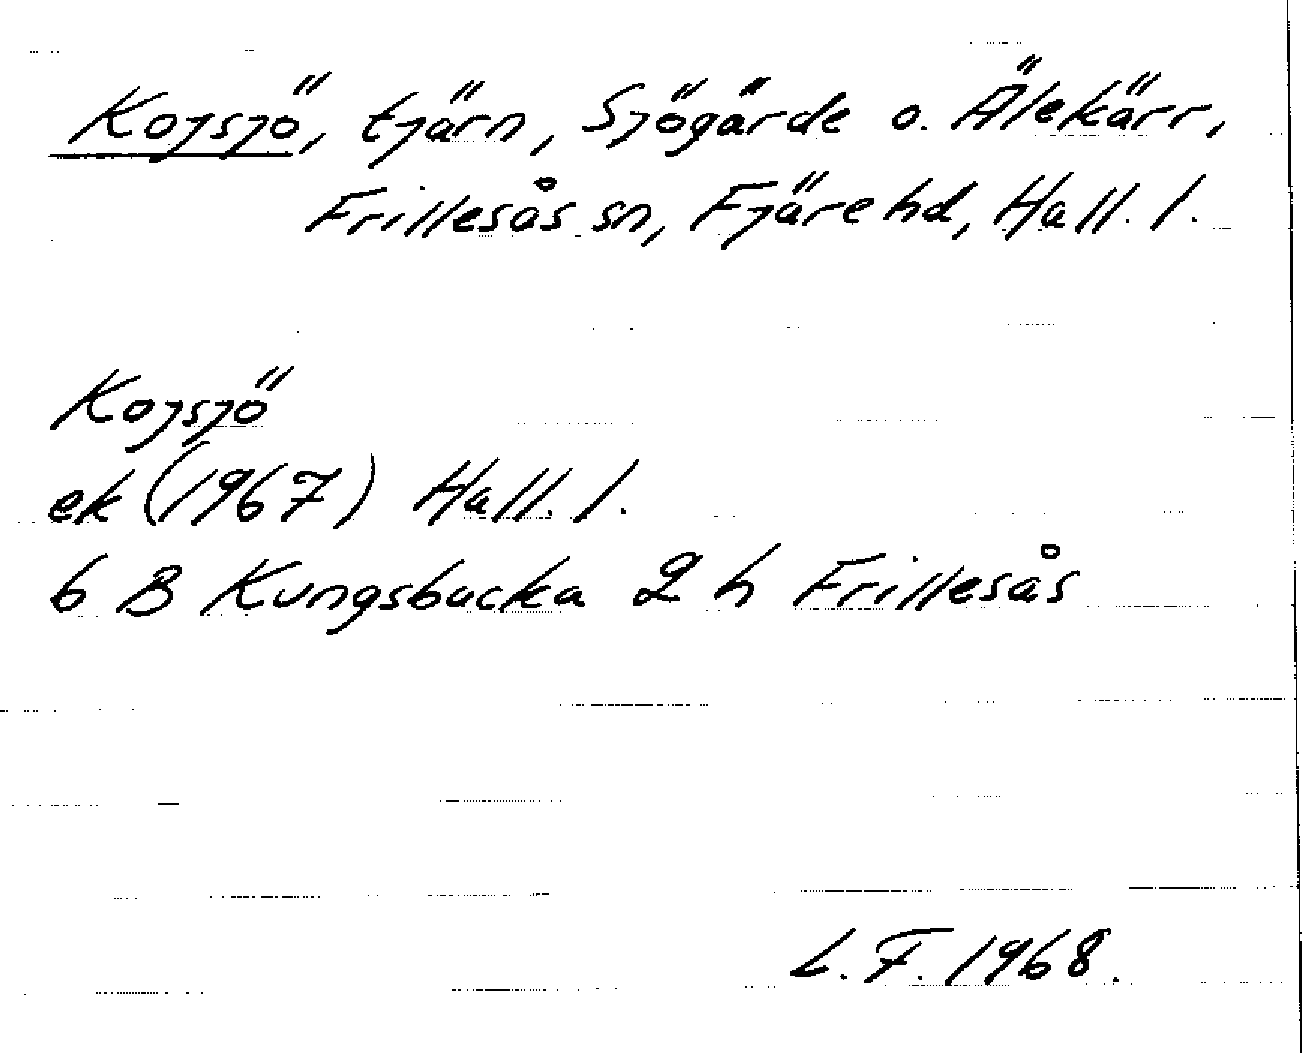 Kojsjö, tjärn, Sjögärde o. Älekärr,
Frillesås sn, Fjäre hd, Hall. l.
Kojsjö
ek (1967) Hall. l.
6 B Kungsbacka 2 h Frillesås
L. F. 1968.